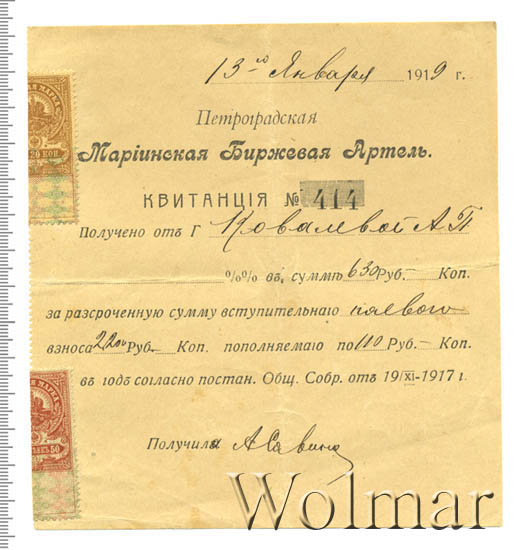 13го Января 1919 г.
Петроградская
Марiинская Биржевая Артель.
КВИТАНЦIЯ № 414
Получено отъ Г Ковалевой А П
%% въ суммѣ 630 Руб. — Коп.
за разсроченную сумму вступительнаго паевого
взноса 22 Руб. — Коп. пополняемаю по 110 Руб. — Коп.
въ годъ согласно постан. Общ. Собр. отъ 19/XI-1917 г.
Получила А Савина
АЯ МАРКА
20 КОП
АЯ МАРКА
ѢЕКЪ 50
Wolmar